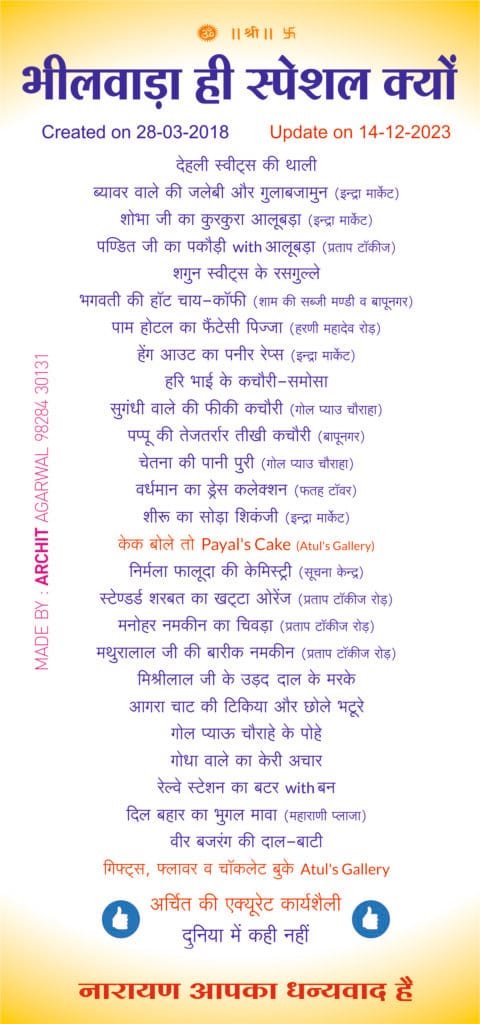 ॐ ||श्री|| 卐
भीलवाड़ा ही स्पेशल क्यों
Created on 28-03-2018 Update on 14-12-2023
देहली स्वीट्स की थाली
ब्यावर वाले की जलेबी और गुलाबजामुन (इन्द्रा मार्केट)
शोभा जी का कुरकुरा आलूबड़ा (इन्द्रा मार्केट)
पण्डित जी का पकौड़ी with आलूबड़ा (प्रताप टॉकीज)
शगुन स्वीट्स के रसगुल्ले
भगवती की हॉट चाय-कॉफी (शाम की सब्जी मण्डी व बापूनगर)
पाम होटल का फैंटेसी पिज्जा (हरणी महादेव रोड़)
हेंग आउट का पनीर रेप्स (इन्द्रा मार्केट)
हरि भाई के कचौरी-समोसा
सुगंधी वाले की फीकी कचौरी (गोल प्याउ चौराहा)
पप्पू की तेजतर्रार तीखी कचौरी (बापूनगर)
चेतना की पानी पुरी (गोल प्याउ चौराहा)
वर्धमान का ड्रेस कलेक्शन (फतह टॉवर)
शीरू का सोड़ा शिकंजी (इन्द्रा मार्केट)
केक बोले तो Payal's Cake (Atul's Gallery)
निर्मला फालूदा की केमिस्ट्री (सूचना केन्द्र)
स्टेण्डर्ड शरबत का खट्टा ओरेंज (प्रताप टॉकीज रोड़)
मनोहर नमकीन का चिवड़ा (प्रताप टॉकीज रोड़)
मथुरालाल जी की बारीक नमकीन (प्रताप टॉकीज रोड़)
मिश्रीलाल जी के उड़द दाल के मरके
आगरा चाट की टिकिया और छोले भटूरे
गोल प्याऊ चौराहे के पोहे
गोधा वाले का केरी अचार
रेल्वे स्टेशन का बटर with बन
दिल बहार का भुगल मावा (महाराणी प्लाजा)
वीर बजरंग की दाल-बाटी
गिफ्ट्स, फ्लावर व चॉकलेट बुके Atul's Gallery
अर्चित की एक्यूरेट कार्यशैली
दुनिया में कही नहीं
नारायण आपका धन्यवाद हैं
MADE BY : ARCHIT AGARWAL 98284 30131